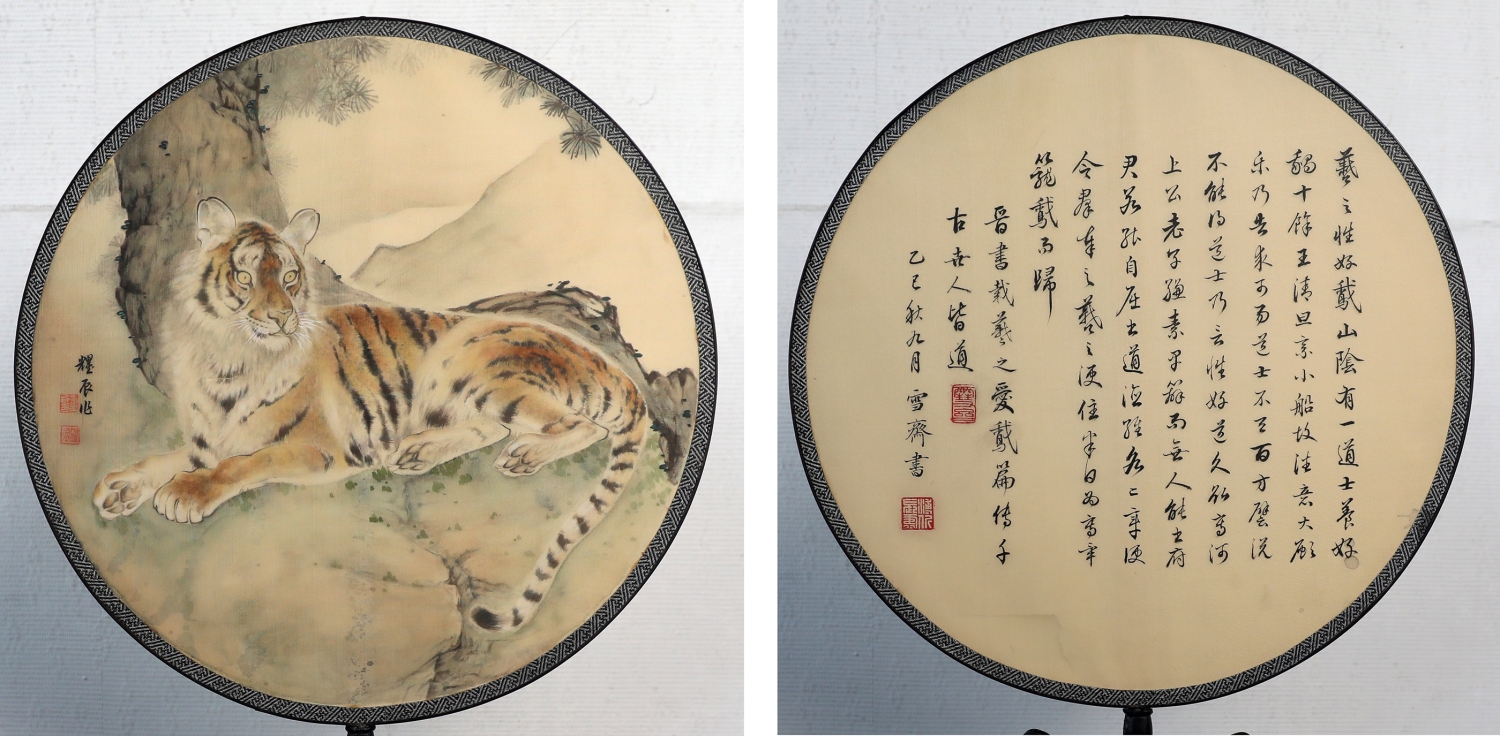 耀辰作
羲之性好鵞山陰有一道士養好
鵝十餘王清旦乘小船故往意大願
樂乃告求市易道士不與百方譬說
不能得道士乃言性好道久欲寫河
上公老子縑素早辦而無人能書府
君若能自屈書道德經各二章便
合羣奉之羲之便住半日為寫畢
籠鵞而歸
晉書載羲之愛鵞篇傳千
古世人皆道
乙巳秋九月 雪齋書